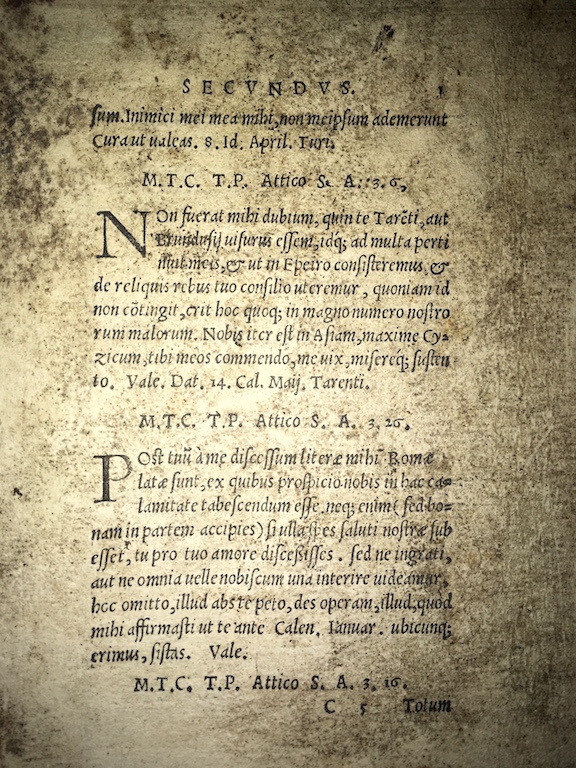 SECVNDVS.
sum. Inimici mei mea mihi, non meipsum ademerunt
Cura ut ualeas. 8. Id. April. Turi.
M.T.C. T.P. Attico S. A. 3. 6,
NOn fuerat mihi dubium, quin te Tarẽti, aut
Brundusij uisurus essem, idq; ad multa perti
nuit meis, & ut in Epeiro consisteremus, &
de reliquis rebus tuo consilio uteremur, quoniam id
non cõtingit, erit hoc quoq; in magno numero nostro
rum malorum. Nobis iter est in Asiam, maxime Cy-
zicum, tibi meos commendo, me uix, misereq; susten
to. Vale. Dat. 14. Cal. Maij. Tarenti.
M.T.C. T.P. Attico S. A. 3. 26.
POst tuũ à me discessum literæ mihi Romæ
latæ sunt, ex quibus prospicio nobis in hac ca-
lamitate tabescendum esse. neq; enim (sed bo-
nam in partem accipies) si ulla spes saluti nostræ sub
esset, tu pro tuo amore discessisses. sed ne ingrati,
aut ne omnia uelle nobiscum una interire uideamur,
hoc omitto, illud abs te peto, des operam, illud, quod
mihi affirmasti ut te ante Calen. Ianuar. ubicunq;
erimus, sistas. Vale.
M.T.C. T.P. Attico S. A. 3. 16.
C 5 Totum